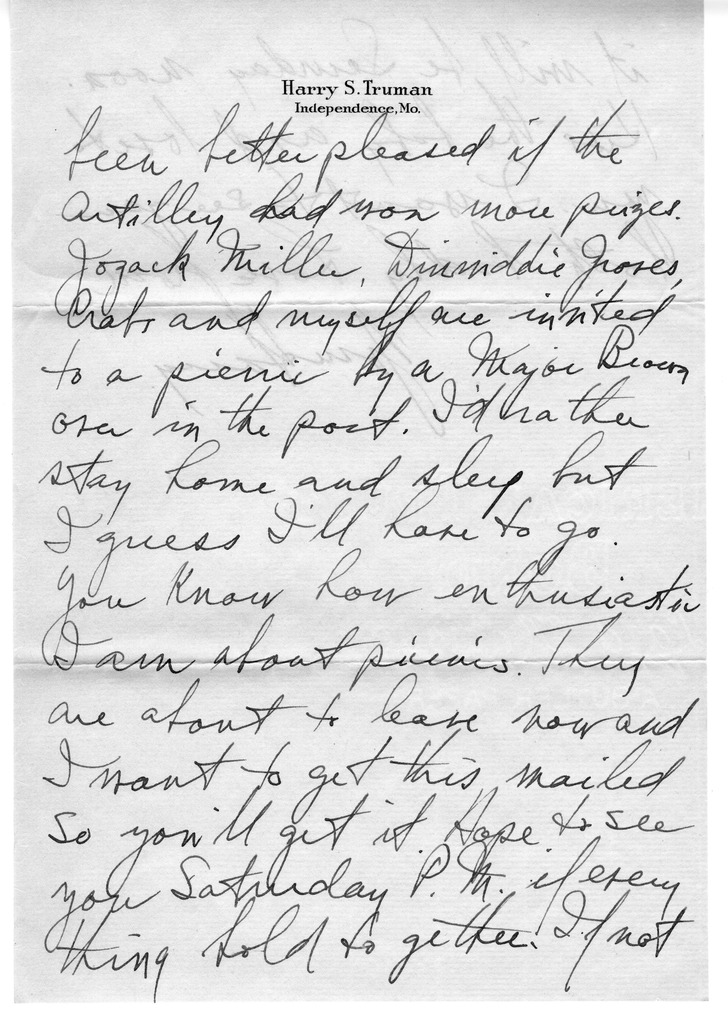 Harry S. Truman
Independence, Mo.
been better pleased if the
Artillery had won more prizes.
Jozack Miller, Dinwiddie Groves,
Crabs and myself are invited
to a picnic by a Major Brown
over in the post. I'd rather
stay home and sleep but
I guess I'll have to go.
You know how enthusiastic
I am about picnics. They
are about to leave now and
I want to get this mailed
so you'll get it. Hope to see
you Saturday P.M. if every
thing hold to gether. If not